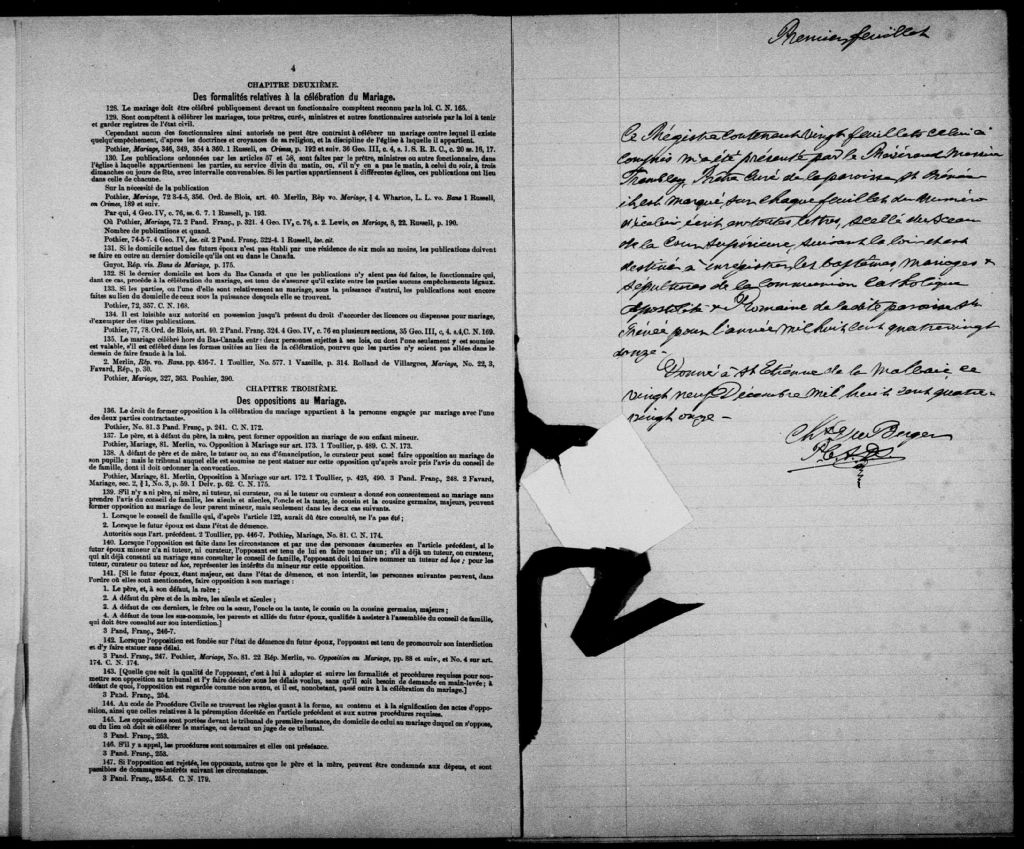 4
CHAPITRE DEUXIÈME.
Des formalités relatives à la célébration du Mariage.
128. Le mariage doit être célébré publiquement devant un fonctionnaire compétent reconnu par la loi. C. N. 165.
129. Sont compétent à célébrer les mariages, tous prêtres, curés, ministres et autres fonctionnaires autorisés par la loi à tenir
et garder registres de l'état civil.
Cependant aucun des fonctionnaires ainsi autorisés ne peut être contraint à célébrer un mariage contre lequel il existe
quelqu'empêchement, d'après les doctrines et croyances de sa religion, et la discipline de l'église à laquelle il appartient.
Pothier, Mariage, 346, 349, 354 à 360. 1 Russell, on Crimes, p. 192 et suiv. 36 Geo. III, c. 4, s. 1. S. R. B. C., c. 20 ss. 16, 17.
130. Les publications ordonnées par les articles 57 et 58, sont faites par le prêtre, ministres ou autre fonctionnaire, dans
l'église à laquelle appartiennent les parties, au service divin du matin, ou, s'il n'y en a pas le matin, à celui du soir, à trois
dimanches ou jours de fête, avec intervalle convenables. Si les parties appartiennent à différentes églises, ces publications ont lieu
dans celle de chacune.
Sur la nécessité de la publication
Pothier, Mariage, 72 3-4-5, 356. Ord. de Blois, art. 40. Merlin, Rép vo. Mariage, § 4. Wharton, L. L. vo. Bans 1 Russell,
on Crimes, 189 et suiv.
Par qui, 4 Geo. IV, c. 76, ss. 6. 7. 1 Russell, p. 193.
Où Pothier, Mariage, 72. 2 Pand. Franç., p. 321. 4 Geo. IV, c. 76, s. 2. Lewis, on Mariage, 8, 22. Russell, p. 190.
Nombre de publications et quand.
Pothier, 74-5-7. 4 Geo. IV, loc. cit. 2 Pand. Franç. 322-4. 1 Russell, loc. cit.
131. Si le domicile actuel des futurs époux n'est pas établi par une résidence de six mois au moins, les publications doivent
se faire en outre au dernier domicile qu'ils ont eu dans le Canada.
Guyot, Rép. vis. Bans de Mariage, p. 175.
132. Si le dernier domicile est hors du Bas Canada et que les publications n'y aient pas été faites, le fonctionnaire qui,
dant ce cas, procède à la célébration du mariage, est tenu de s'assurer qu'il existe entre les parties aucuns empêchements légaux.
133. Si les parties, ou l'une d'elle sont relativement au mariage, sous la puissance d'autrui, les publications sont encore
faites au lieu du domicile de ceux sous la puissance desquels elle se trouvent.
Pothier, 72, 357. C. N. 168.
134. Il est loisible aux autorité en possession jusqu'à présent du droit d'accorder des licences ou dispenses pour mariage,
d'exempter des dites publications.
Pothier, 77, 78. Ord. de Blois, art. 40. 2 Pand Franç. 324. 4 Geo. IV, c. 76 en plusieurs sections, 35 Geo. III, c, 4. s.4,C. N. 169.
135. Le mariage célébré hors du Bas-Canada entre deux personnes sujettes à ses lois, ou dont l'one seulement y est soumise
est valable, s'il est célébré dans les formes usitées au lieu de la célébration, pourvu que les parties n'y soient pas allées dans le
dessein de faire fraude à la loi.
2. Merlin, Rép. vo. Bans. pp. 436-7. 1 Toullier, No. 577. 1 Vazille, p. 314. Rolland de Villargues, Mariage, No. 22, 3,
Favard, Rép., p. 30.
Pothier, Mariage, 327, 363. Pouhier, 390.
CHAPITRE TROISIÈME.
Des oppositions au Mariage.
136. Le droit de former opposition à la célébration du mariage appartient à la personne engagée par mariage avec l'une
des deux parties contractantes.
Pothier, No. 81. 3 Pand. Franç., p. 241. C. N. 172.
137. Le père, et à défaut du père, la mère, peut former opposition au mariage de son enfant mineur.
Pothier, Mariage, 81. Merlin, vo. Opposition à Mariage sur art. 173. 1 Toullier, p. 489. C. N. 173.
138. A défaut de père et de mère, le tuteur ou, au cas d'émancipation, le curateur peut aussi faire opposition au mariage de
son pupille; mais le tribunal auquel elle est soumise ne peut statuer sur cette opposition qu'après avoir pris l'avis du conseil de
famille, dont il doit ordonner la convocation.
Pothier, Mariage, 81. Merlin, Opposition à Mariage sur art. 172. 1 Toullier, p. 425, 490. 3 Pand. Franç., 248. 2 Favard,
Mariage, sec. 2, § 1, No. 3, p. 59. 1 Delv. p. 62. C. N. 175.
139. S'il n'y a ni père, ni mère, ni tuteur, ni curateur, ou si le tuteur ou curateur a donné son consentement au mariage sans
prendre l'avis du conseil de famille, les aïeuls et aïeules, l'oncle et la tante, le cousin et la cousine germains, majeurs, peuvent
former opposition au mariage de leur parent mineur, mais seulement dans les deux cas suivants.
1. Lorsque le conseil de famille qui, d'après l'article 122, aurait dû être consulté, ne l'a pas été;
2. Lorsque le futur époux est dans l'état de démence.
Autorités sous l'art. précédent. 2 Toullier, pp. 446-7. Pothier, Mariage, No. 81. C. N. 174.
140. Lorsque l'opposition est faite dans les circonstances et par une des personnes énumérées en l'article précédent, si le
futur époux mineur n'a ni tuteur, ni curateur, l'opposant est tenu de lui en faire nommer un; s'il a déjà un tuteur, ou curateur,
qui ait déjà consenti au mariage sans consulter le conseil de famille, l'opposant doit lui faire nommer un tuteur ad hoc; pour les
tuteur, curateur ou tuteur ad hoc, représenter les intérêts du mineur sur cette opposition.
141. [Si le futur époux, étant majeur, est dans l'état de démence, et non interdit, les personnes suivantes peuvent, dans
l'ordre où elles sont mentionnées, faire opposition à son mariage:
1. Le père, et, à son défaut, la mère;
2. A défaut du père et de la mère, les aïeuls et aïeules;
3. A défaut de ces derniers, le frère ou la sœur, l'oncle ou la tante, le cousin ou la cousine germains, majeurs;
4. A défaut de tous les sus-nommés, les parents et alliés du futur époux, qualifiés à assister à l'assemblée du conseil de famille,
qui doit être consulté sur son interdiction.]
3 Pand, Franç., 246-7.
142. Lorsque l'opposition est fondée sur l'état de démence du futur époux, l'opposant est tenu de promouvoir son interdiction
et d'y faire statuer sans délai.
3 Pand. Franç., 247. Pothier, Mariage, No. 81. 22 Rép. Merlin, vo. Opposition au Mariage, pp. 88 et suiv., et No. 4 sur art.
174. C. N. 174.
143. [Quelle que soit la qualité de l'opposant, c'est à lui à adopter et suivre les formalités et procédures requises pour sou-
mettre son opposition au tribunal et l'y faire décider sous les délais voulus, sans qu'il soit besoin de demande en main-levée; à
défaut de quoi, l'opposition est regardée comme non avenu, et il est, nonobstant, passé outre à la célébration du mariage.]
3 Pand. Franç., 254.
144. Au code de Procédure Civile se trouvent les règles quant à la forme, au contenu et à la signification des actes d'oppo-
sition, ainsi que celles relatives à la péremption décrétée en l'article précédent et aux autres procédures requises.
145. Les oppositions sont portées devant le tribunal de première instance, du domicile de celui au mariage duquel on s'oppose,
ou du lieu où doit se célébrer le mariage, ou devant un juge de ce tribunal.
3 Pand. Franç., 253.
146. S'il y a appel, les procédures sont sommaires et elles ont préséance.
3 Pand. Franç., 253.
147. Si l'opposition est rejetée, les opposants, autres que le père et la mère, peuvent être condamnés aux dépens, et sont
passibles de dommages-intérêts suivant les circonstances.
3 Pand. Franç., 255-6. C. N. 179.
Premier feuillet
Ce Régistre contenant vingt feuillets celui ci
compris m'a été présenté par le Révérend Messire
Tremblay Prêtre Curé de la paroisse St Irénée
il est marqué sur chaque feuillet du Numéro
d'icelui écrit en toutes lettres, scellé du Sceau
de la Cour Supérieure, suivant la loi et est
destiné à enregistrer les baptêmes, mariages &
sépultures de la Communion Catholique
Apostolique & Romaine de la dite paroisse St
Irénée pour l'année mil huit cent quatre vingt
onze -
Donné à St Etienne de la Malbaie ce
vingt neuf Décembre mil huit cent quatre-
vingt onze -
P.C.S.